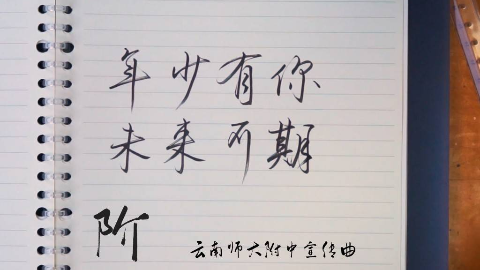 年少有你
未来可期
阶
云南师大附中宣传曲